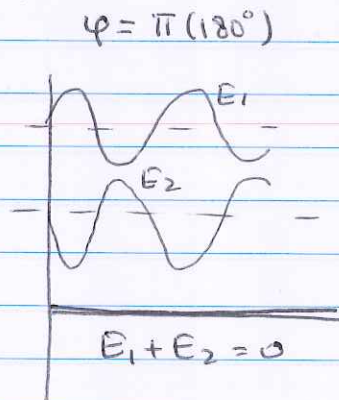 φ = π (180°)
E₁
E₂
E₁ + E₂ = 0